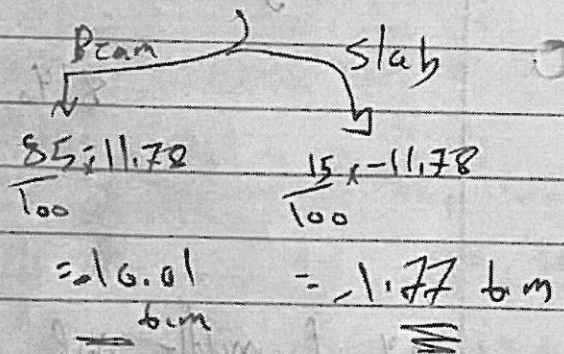 Beam Slab
85/100 × -11.78 15/100 × -11.78
= -10.01 t.m = -1.77 t.m